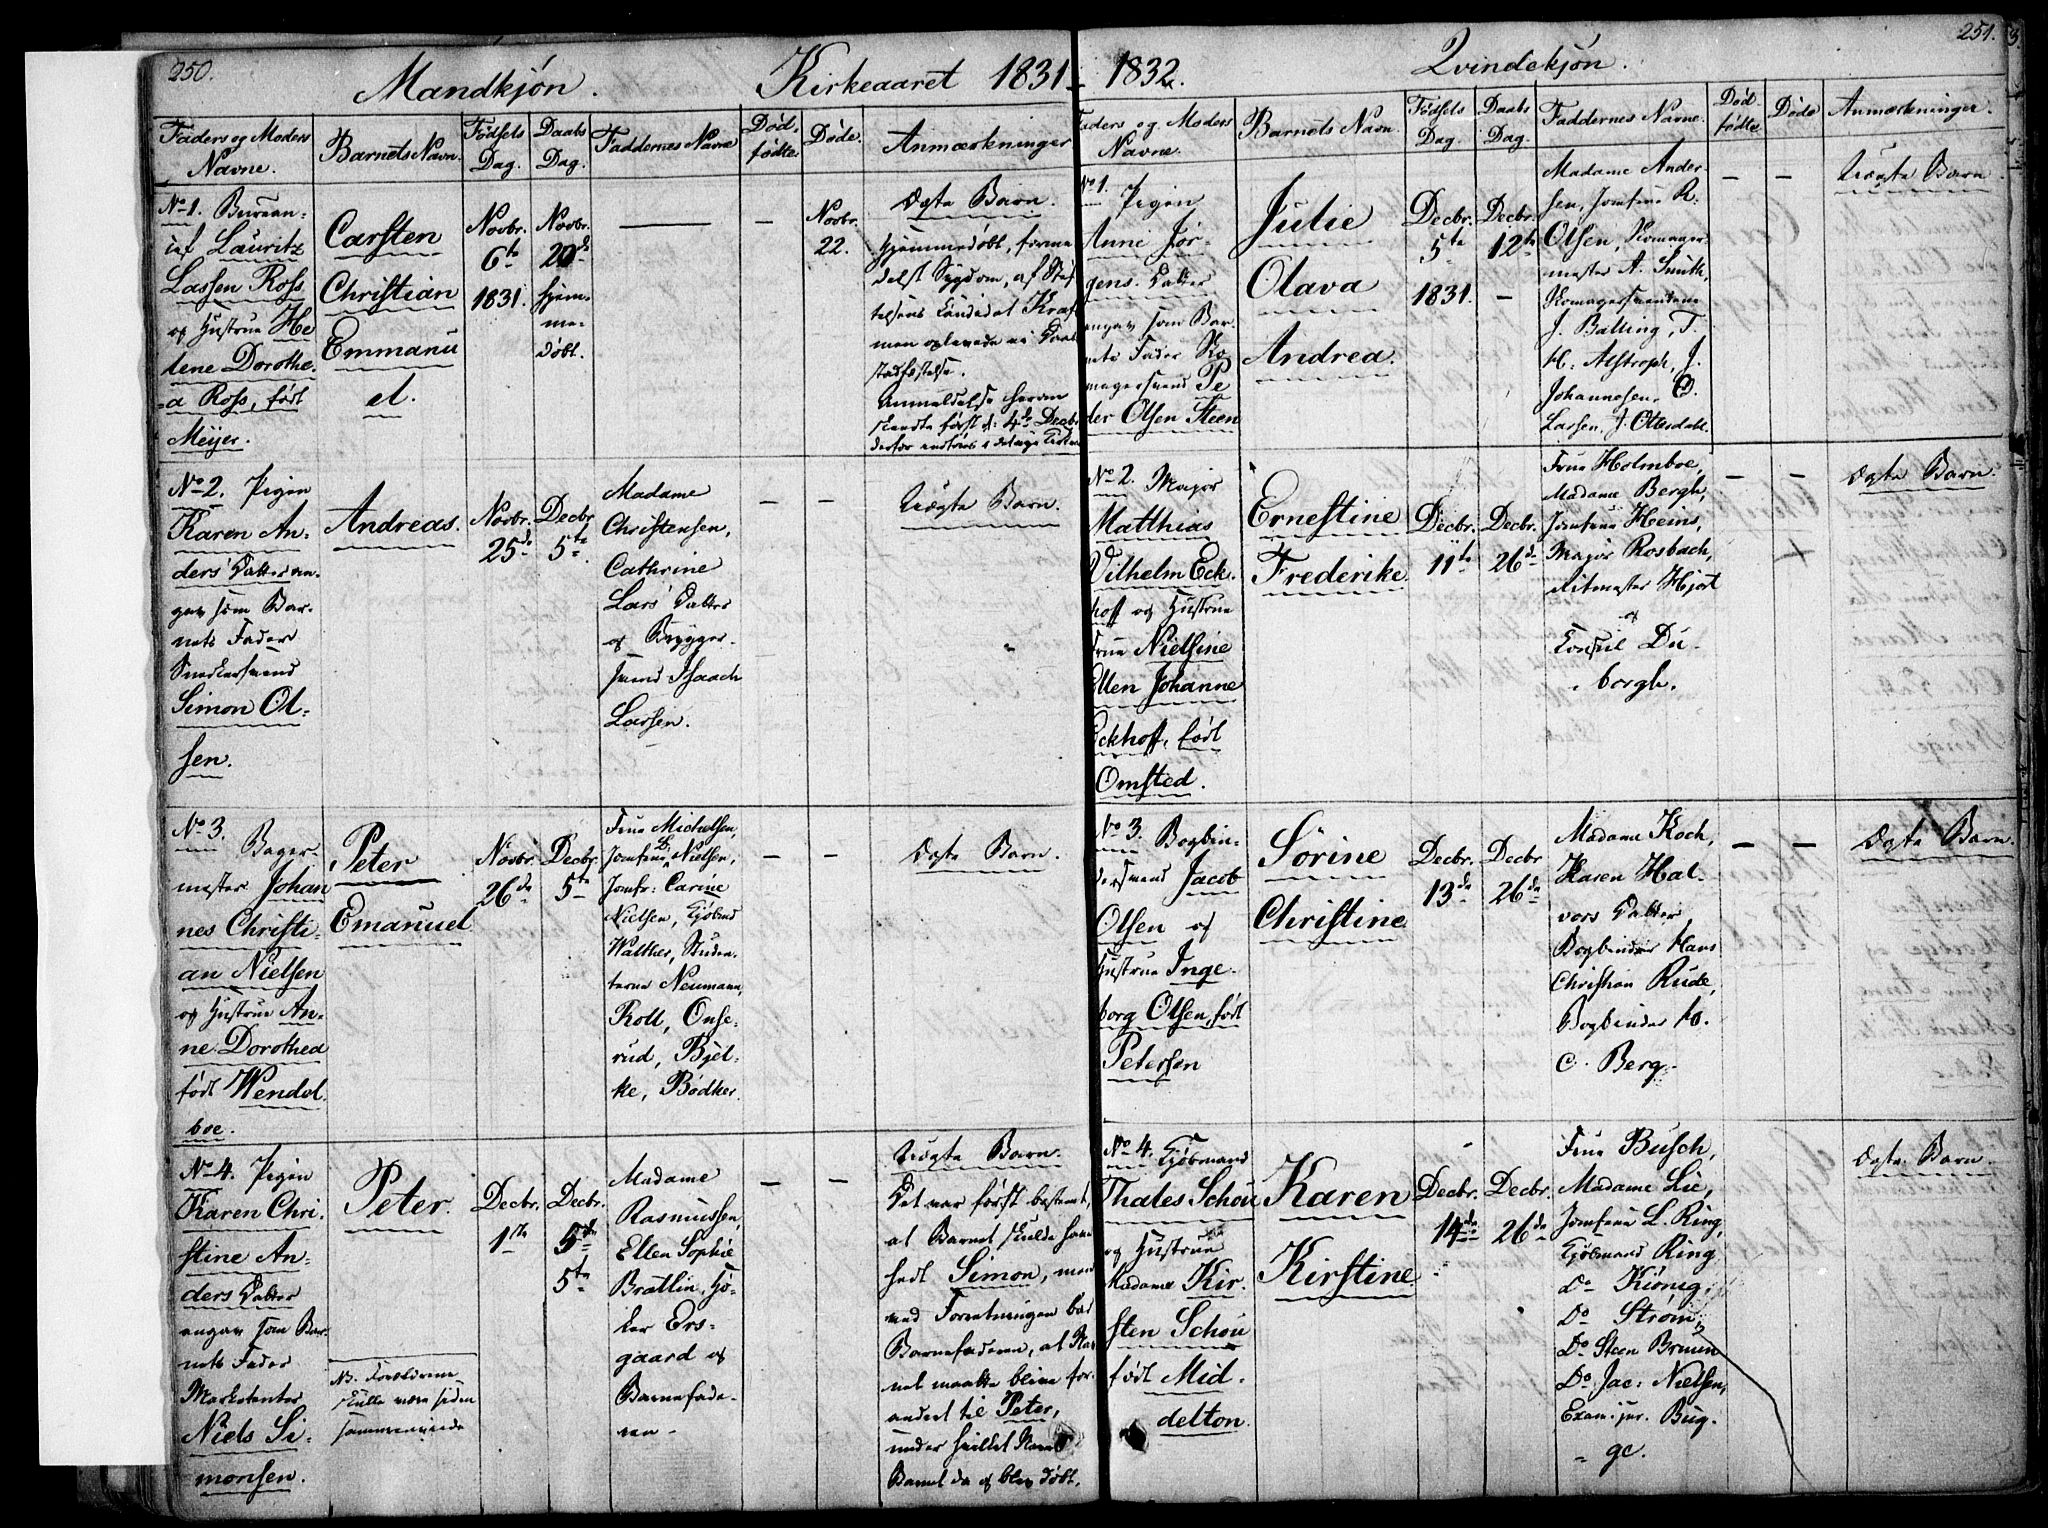 250.
Mandkjön.
Kirkeaaret 1831-
Faders og Moders Navne.
Barnets Navn.
Fødsels Dag.
Daabs Dag.
Faddernes Navne
Død-fødte
Døde.
Anmærkninger
No 1.
Lauritz
Lassen Ross
og Hustrue He
lene Dorothe-
a Ross, født
Meyer.
Carsten
Christian
Emmanu
el.
Novbr.
6te
1831.
Novbr.
20de
hjem-
me-
døbt.
—
—
Novbr.
22.
Ægte Barn.
Hjemmedøbt, forme
delst Sygdom, af Stif
telsens Candidat Kraft
men oplevede ei Daab
stadfæstelse.
Anmeldelse herom
skeedte først d: 4de Decbr.
No 2. Pigen
Karen An-
ders Datter an-
gav som Bar-
nets Fader
Snedkersvend
Simon Ol-
sen.
Andreas.
Novbr.
25de
Decbr.
5te
Madame
Christensen,
Cathrine
Lars Datter
og Brygger-
svend Isaach
Larsen.
— —
Uægte Barn.
No 3. Bager-
mester Johan
nes Christi-
an Nielsen
og Hustrue An-
ne Dorothea
født Wendel-
boe.
Peter
Emanuel
Novbr.
26de
Decbr.
5te
Frue Michelsen,
Jomfrue D. Nielsen,
Jomfr: Carine
Nielsen, Kjöbmd
Walther, Studen-
terne Neumann,
Roll, Onse-
rud, Bjel-
ke, Bødker.
— —
Ægte Barn.
No 4. Pigen
Karen Chri-
stine An-
ders Datter
angav som Bar-
nets Fader
Marketenter
Niels Si-
monsen.
Peter.
NB. Forældrene
skulle være siden
sammenviede
Decbr.
1te
Decbr.
5te
5te
Madame
Rasmussen,
Ellen Sophie
Bratlin, Hø-
ker Ers-
gaard og
Barnefade-
ren -
— —
Uægte Barn.
Det var først bestemt,
at Barnet skulde have
hedt Simon, men
ved Forretningen bad
Barnefaderen, at Nav
net maatte blive for-
andret til Peter,
under hvilket Navn
Barnet da og blev døbt.
1832.
Qvindekjön.
251.
Faders og Moders Navne.
Barnets Navn.
Fødsels Dag.
Daabs Dag.
Faddernes Navne.
Død fødte
Døde
Anmærkninger.
No 1.
Pigen
Anne Jör-
gens Datter
angav som Bar-
nets Fader Ko
magersvend Pe
der Olsen Steen
Julie
Olava
Andrea.
Decbr.
5te
1831.
Decbr.
12te
—
Madame Ander-
sen, Jomfrue R.
Olsen, Komager-
mester A. Smith,
Komagersvendene
J. Balling, T.
H. Alstroph, J.
Johannesen, O.
Larsen, J. Ottesdahl.
— —
Uægte Barn.
No 2. Major
Matthias
Vilhelm Eck-
hoff og Hustrue
Frue Nielsine
Ellen Johanne
Eckhoff, født
Omsted.
Ernestine
Frederike.
Decbr.
11te
Decbr.
26de
Frue Holmboe,
Madame Bergh,
Jomfrue Heins,
Major Rosbach,
Ritmester Hjort
og
Consul Du-
borgh.
— —
Ægte Barn.
No 3. Bogbin-
dersvend Jacob
Olsen og
Hustrue Inge-
borg Olsen, født
Petersen
Sörine
Christine
Decbr.
13de
Decbr
26de
Madame Koch,
Karen Hal-
vors Datter,
Bogbinder Hans
Christian Rude,
Bogbinder H.
C. Berg.
— —
Ægte Barn.
No 4. Kjöbmand
Thales Schou
og Hustrue
Madame Kir-
sten Schou
født Mid-
delton.
Karen
Kirstine
Decbr.
14de
Decbr.
26de
Frue Busch,
Madame Lie,
Jomfrue L. Ring,
Kjöbmand Ring
Do Kiönig,
Do Ström,
Do Steen Bruun
Do Jac: Nielsen,
Exam: jur. Bug-
ge.
Ægte Barn.